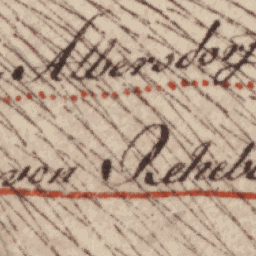 Albersdorf
von Reheb